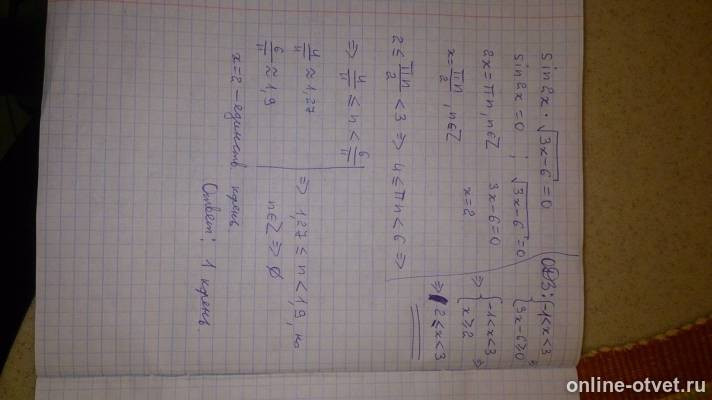 sin2x · √3x-6 = 0
ОДЗ: { -1<x<3
{ 3x-6≥0 ⇒
sin2x = 0 ; √3x-6 = 0
⇒ { -1<x<3
{ x≥2 ⇒
2x = πn, n∈Z
3x-6=0
⇒ 2≤x<3
x = πn/2, n∈Z
x=2
2 ≤ πn/2 < 3 ⇒ 4 ≤ πn < 6 ⇒
⇒ 4/π ≤ n < 6/π
4/π ≈ 1,27
6/π ≈ 1,9
⇒ 1,27 ≤ n < 1,9, но
n∈Z ⇒ ∅
x=2 - единств корень
Ответ: 1 корень
online-otvet.ru